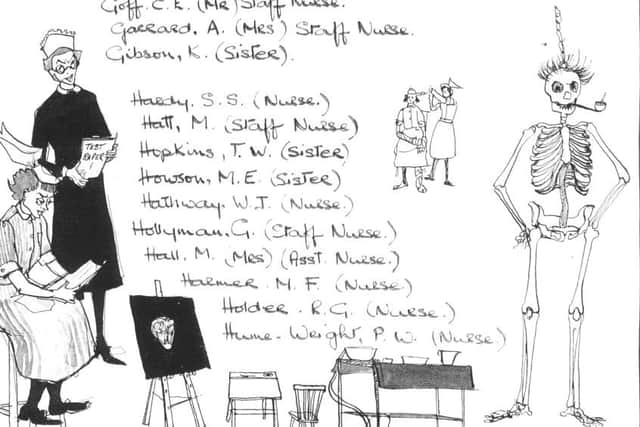 Goff. C. E. (Mr) Staff Nurse.
Garrard, A. (Mrs) Staff Nurse.
Gibson, K. (Sister).
Hardy. S. S. (Nurse.)
Hatt, M. (Staff Nurse)
Hopkins, T. W. (Sister)
Howson, M. E. (Sister)
Halliway. W. J. (Nurse.)
Hollyman. G. (Staff Nurse.)
Hall, M. (Mrs) (Asst. Nurse.)
Harmer. M. F. (Nurse.)
Holder. R. G. (Nurse.)
Hume-Weight, P. W. (Nurse.)
TEST
PAPER